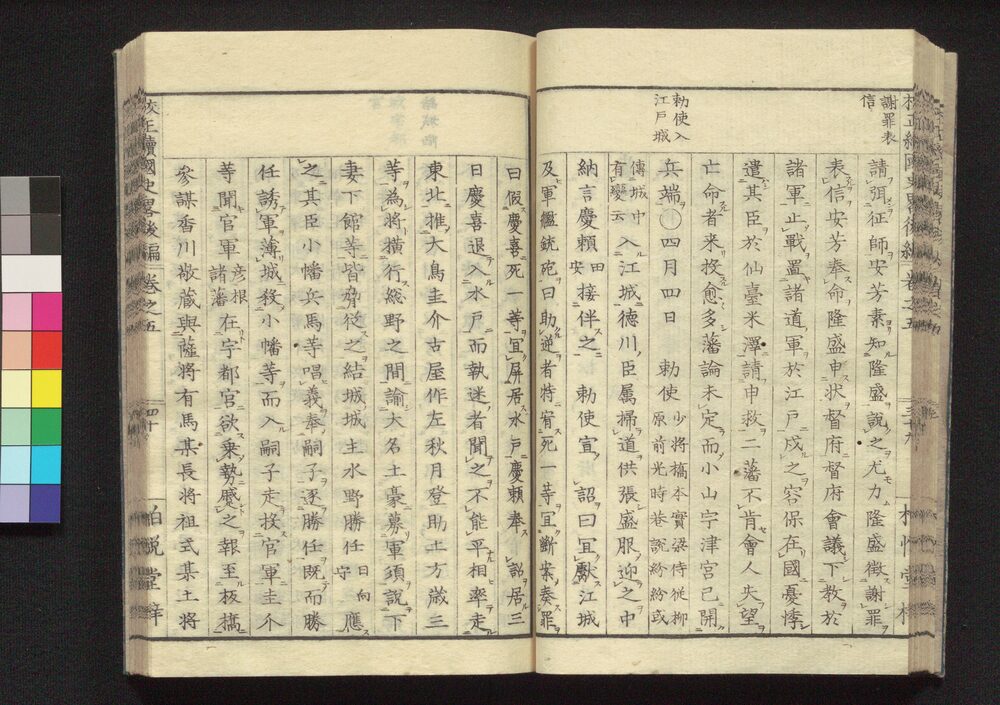 謝罪表
信
勅使入
江戸城
請弭征師安芳素知隆盛說之尤力隆盛徵謝罪
表信安芳奉命隆盛申狀督府督府會議下教於
諸軍止戰置諸道軍於江戶戍之容保在國憂悸
遣其臣於仙臺米澤請申救二藩不肯會人失望
亡命者来投愈多藩論未定而小山宇津宮已開
兵端〇四月四日 勅使少將橋本實梁侍從柳原前光時巷說紛紛或
傳城中有變云入江城德川臣属掃道供張盛服迎之中
納言慶頼田安接伴之 勅使宣 詔曰冝獻江城
及軍艦銃砲曰助逆者特宥死一等冝斷案奏罪
曰假慶喜死一等冝屏居水戸慶頼奉 詔居三
日慶喜退入水戸而執迷者聞之不能平相率走
東北推大鳥圭介古屋作左秋月登助土方歳三
等為將橫行総野之間諭大名土豪募軍須說下
妻下館等皆脅從之結城城主水野勝任日向守應
之其臣小幡兵馬等唱義奉嗣子逐勝任既而勝
任誘軍薄城殺小幡等而入嗣子走投官軍圭介
等聞官軍彦根諸藩在宇都宮欲乗勢蹙之報至板橋
參謀香川敬蔵與薩將有馬某長將祖式某土將
校正續國史畧後編 卷之五
四十
柏悅堂梓